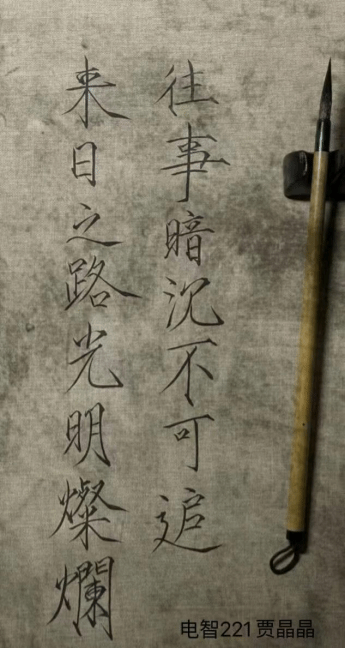 往事暗沉不可追
来日之路光明燦爛
电智221贾晶晶